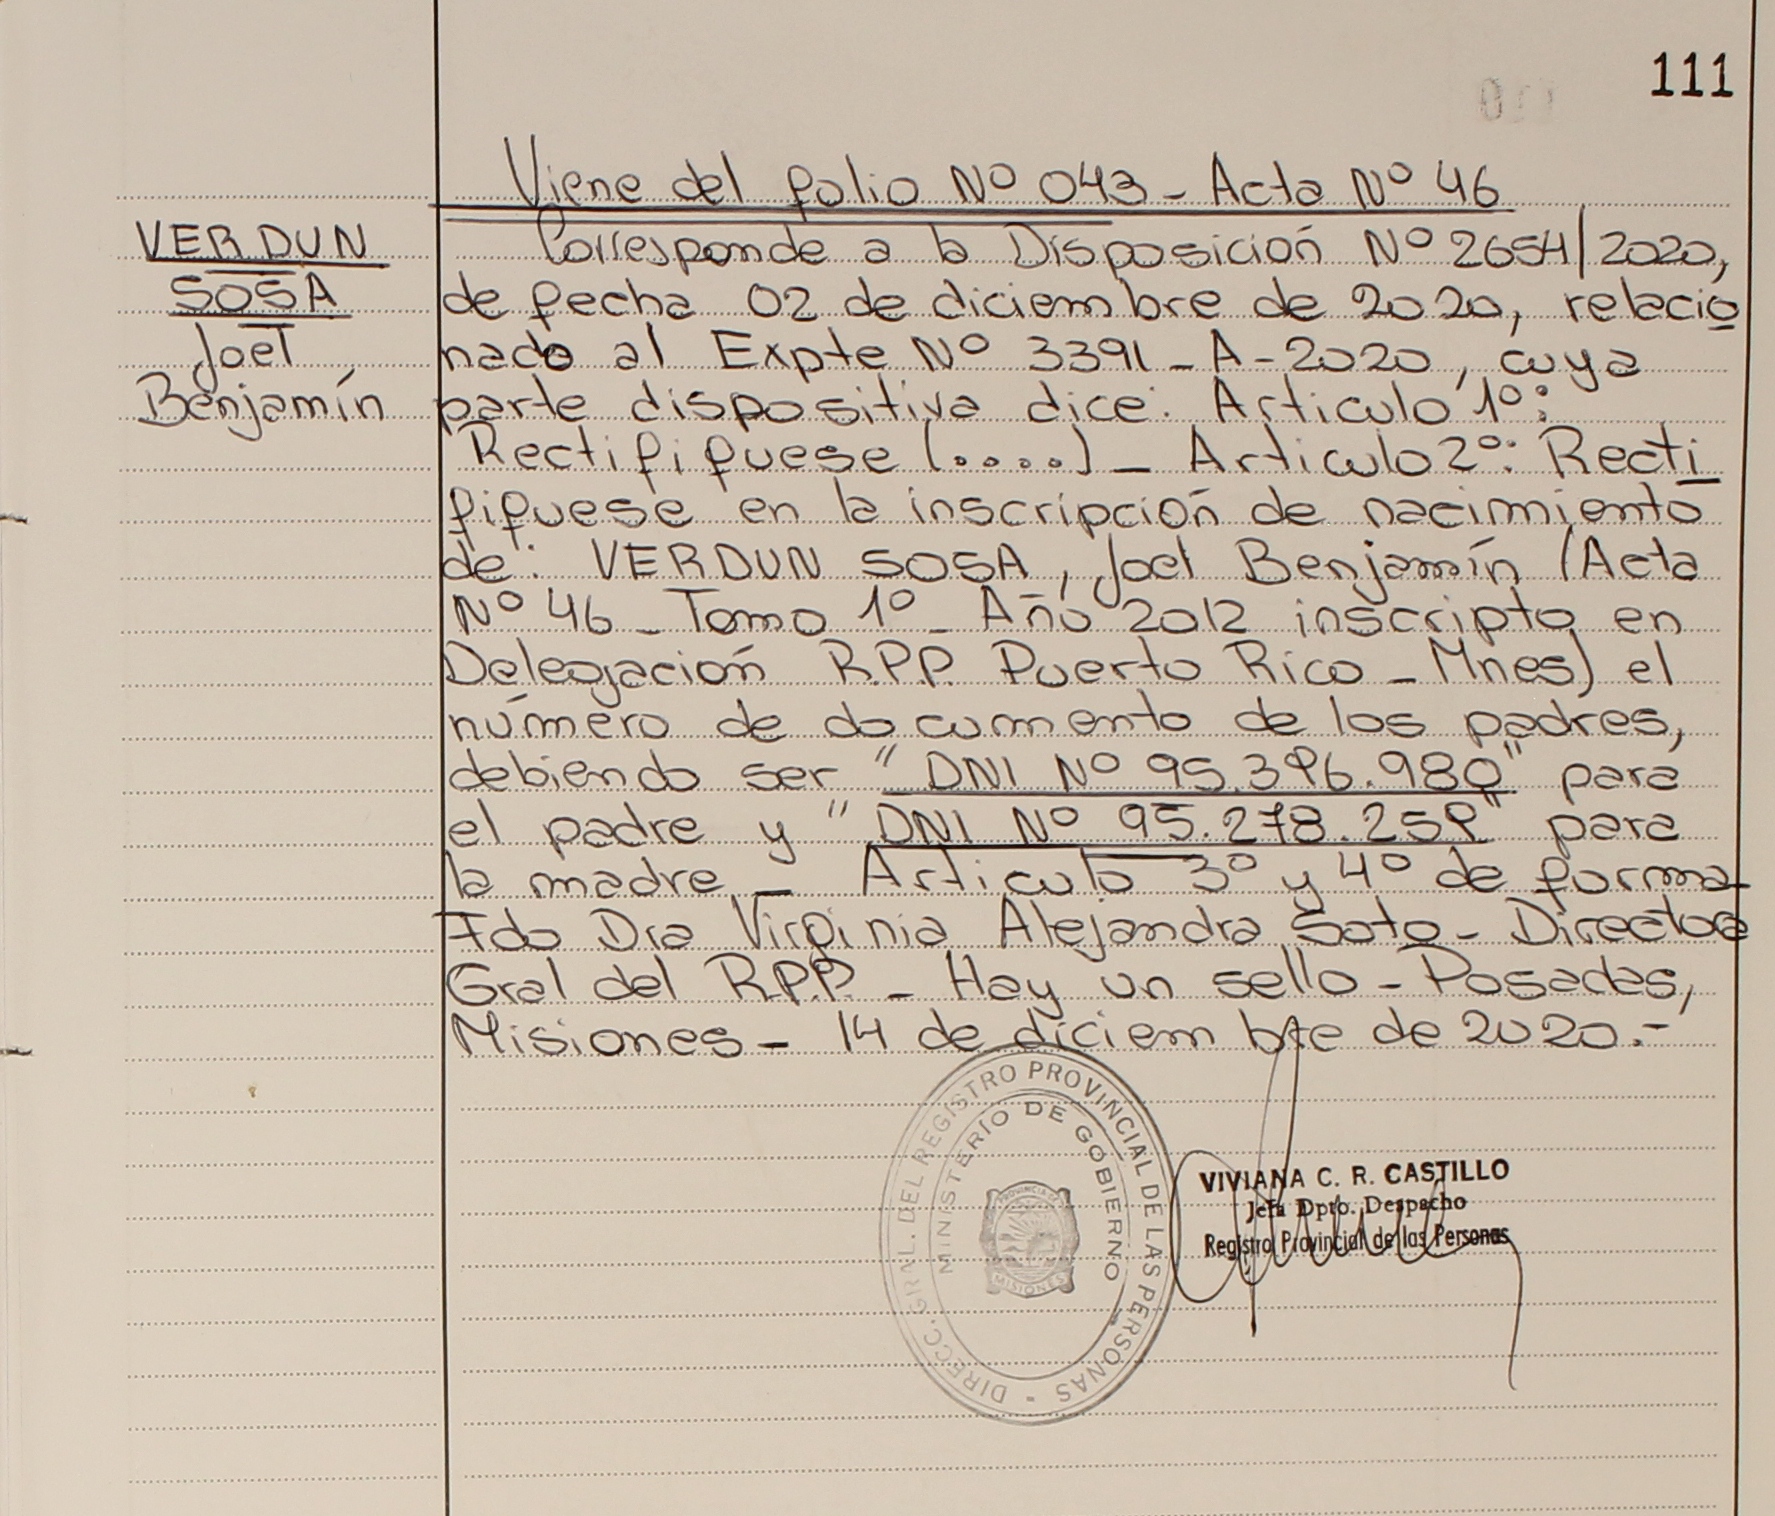 111
Viene del folio Nº 043 - Acta Nº 46
VERDUN
SOSA
Joel
Benjamín
Corresponde a la Disposición Nº 2654/2020,
de fecha 02 de diciembre de 2020, relacio
nado al Expte Nº 3391 - A - 2020, cuya
parte dispositiva dice: Articulo 1º:
Rectifiquese (....) - Articulo 2º: Recti
fiquese en la inscripción de nacimiento
de: VERDUN SOSA, Joel Benjamín (Acta
Nº 46 - Tomo 1º - Año 2012 inscripto en
Delegación R.P.P. Puerto Rico - Mnes) el
número de documento de los padres,
debiendo ser "DNI Nº 95.396.980" para
el padre y "DNI Nº 95.278.259" para
la madre - Articulo 3º y 4º de forma -
Fdo Dra Virginia Alejandra Soto - Directora
Gral del R.P.P. - Hay un sello - Posadas,
Misiones - 14 de diciembre de 2020.-
DIRECC. GRAL. DEL REGISTRO PROVINCIAL DE LAS PERSONAS -
MINISTERIO DE GOBIERNO
PROVINCIA DE
MISIONES
VIVIANA C. R. CASTILLO
Jefa Dpto. Despacho
Registro Provincial de las Personas